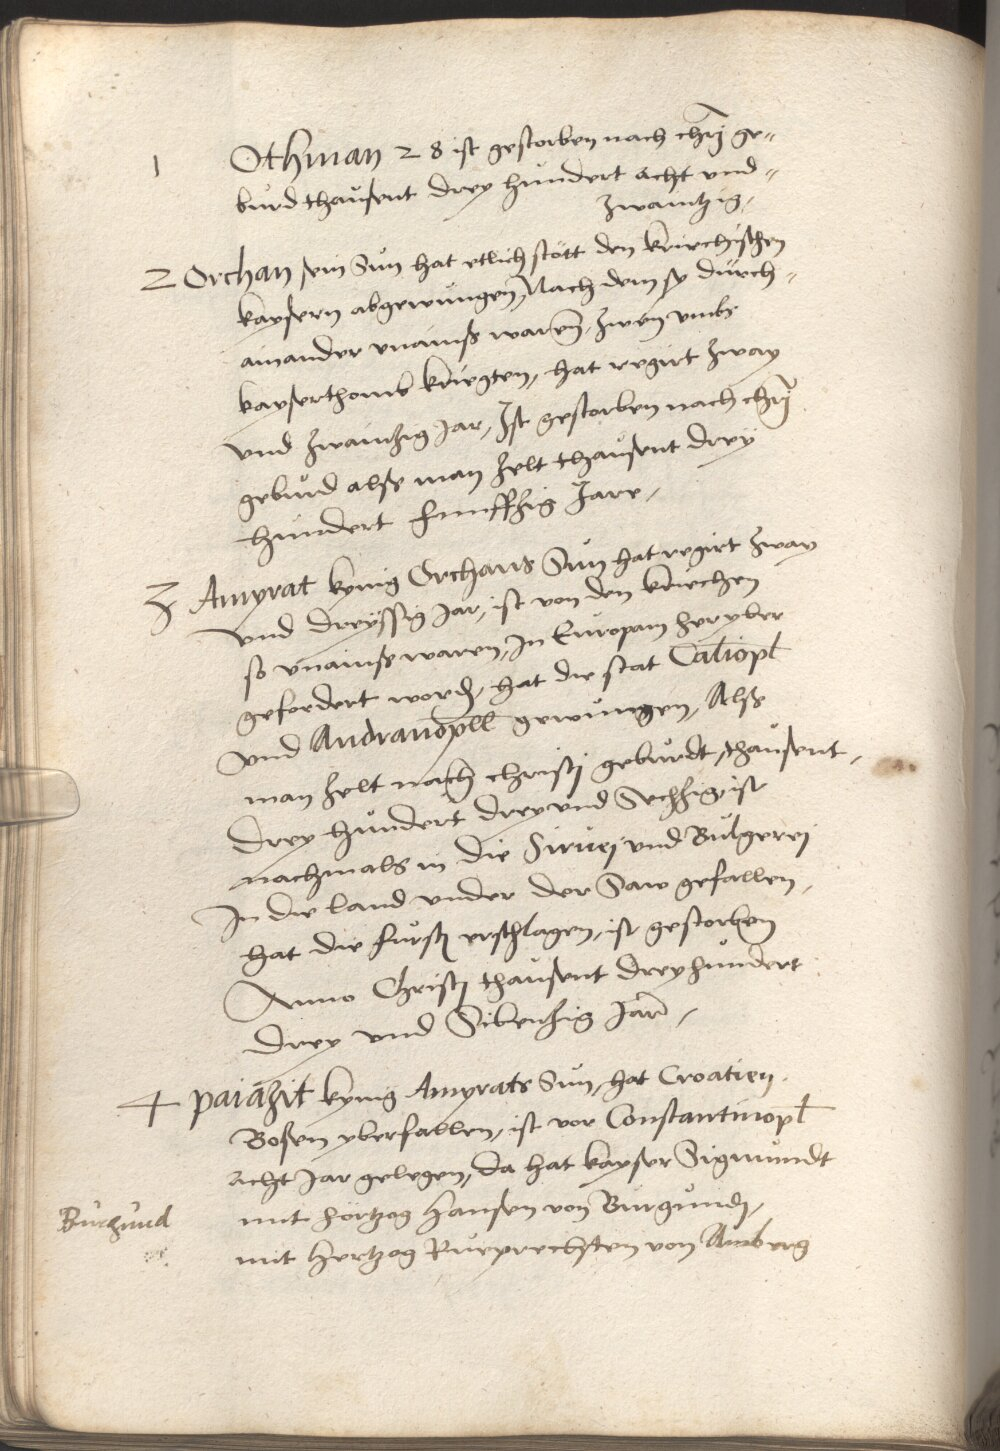 1 Othman 28 ist gestorben nach chrj ge=
burd thausent drey hundert acht vnd=
zwaintzig,
2 Orchan sein Sun hat etlich stött den kriechischen
kaysern abgewungen, Nach dem sy durch=
ainander vnainß waren, zwen vmbs
kayserthomb kriegten, hat regirt zway
vnd zwaintzig Jar, Ist gestorben nach chrj
geburd alße man zelt thausent drey
hundert funffzig Jare,
3 Amyrat kynig Orchans Sun hat regirt zway
vnd dreyssig Jar, ist von den kriechen
so vnainß waren, In Europam heryber
gefordert word, hat die stat Caliopl
vnd Andranopll gewungen, Alß
man zelt nach christj geburdt, thausent,
drey hundert drey vnd Sechzig, ist
nachmals in die Siruej vnd Bulgerej
In die land vnder der Saw gefallen,
hat die furstn erschlagen, ist gestorben
Anno Christj thausent dreyhundert
drey vnd Sibenzig Jar,
4 paiazit kynig Amyrats Sun, hat Croatien
Boßen yberfallen, ist vor Constantinopl
acht Jar gelegen, da hat kayser Sigmundt
mit hertzog Hansen von Burgundj,
Burgund
mit Hertzog Rueprechten von Amberg